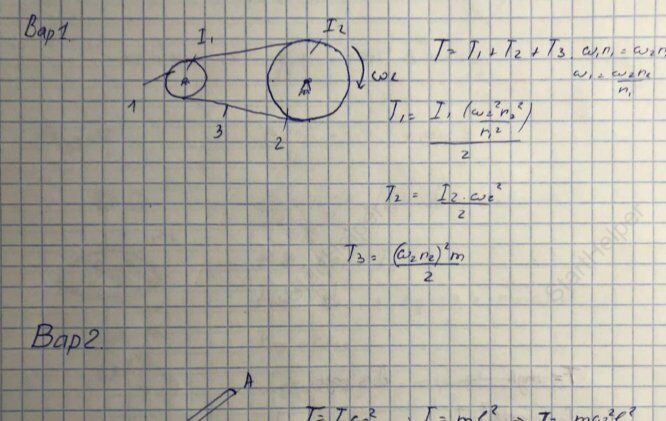 Вар 1.
I₁
I₂
ω₂
1
3
2
T = T₁ + T₂ + T₃. ω₁n₁ = ω₂n
ω₁ = ω₂n₂/n₁
T₁ = I₁(ω₂²n₂²/n₁²)/2
T₂ = I₂·ω₂²/2
T₃ = (ω₂n₂)²m/2
StantHelper
Вар 2.
A